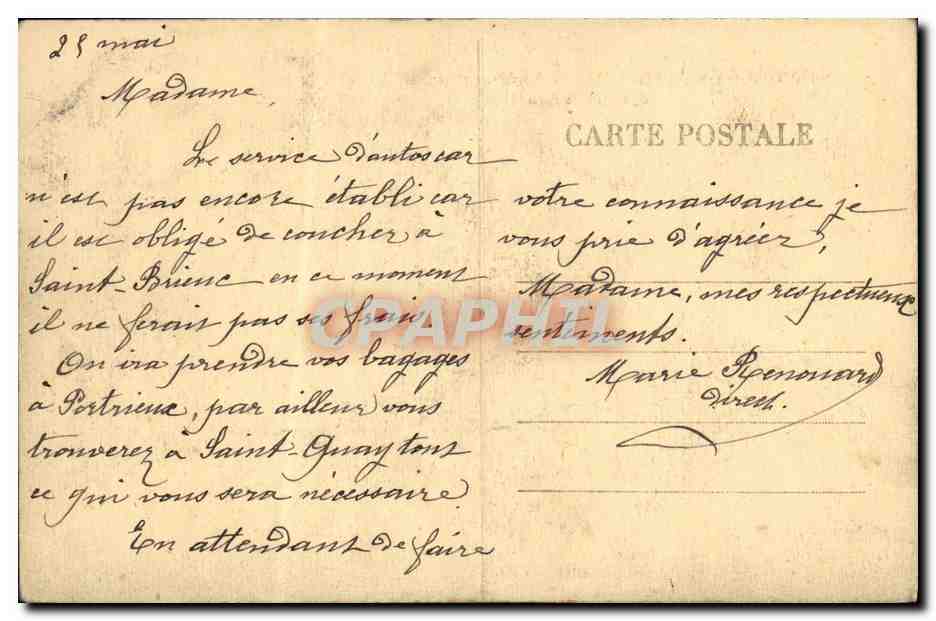 25 mai
Madame,
Le service d'autoscar
n'est pas encore établi car
il est obligé de coucher à
Saint-Brieuc en ce moment
il ne ferait pas ses frais.
On ira prendre vos bagages
à Portrieux, par ailleur vous
trouverez à Saint-Quay tout
ce qui vous sera nécessaire
En attendant de faire
CARTE POSTALE
votre connaissance je
vous prie d'agréer,
Madame, mes respectueux
sentiments.
Marie Renouard
direct.
CPAPHIL